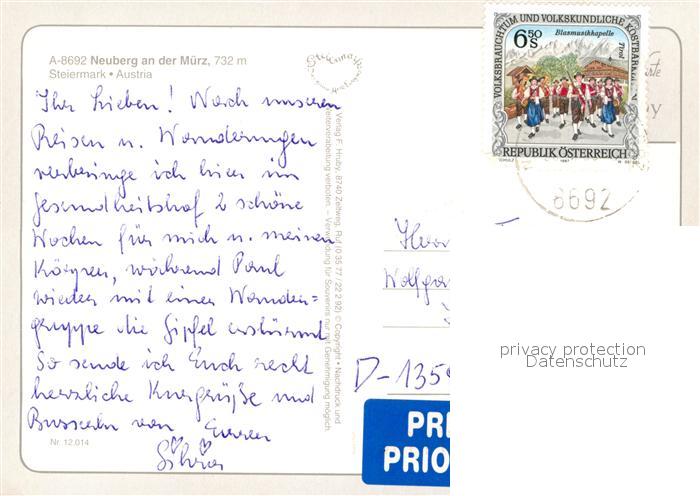 A-8692 Neuberg an der Mürz, 732 m
Steiermark • Austria
Ihr Lieben! Nach unseren
Reisen u. Wanderungen
verbringe ich hier im
Gesundheitshof 2 schöne
Wochen für mich u. meinen
Körper, während Paul
wieder mit einer Wander=
gruppe die Gipfel erstürmt.
So sende ich Euch recht
herzliche Kurgrüße und
Busserln von Eurer
Silvia
Nr. 12.014
Verlag F. Hruby, 8740 Zeltweg, Ruf (0 35 77 / 22 2 92) © Copyright • Nachdruck und
Weiterverarbeitung verboten. – Verwendung für Souvenirs nur mit Genehmigung möglich.
VOLKSBRAUCHTUM UND VOLKSKUNDLICHE KOSTBARKEITEN
6.50 S
Blasmusikkapelle
Tirol
REPUBLIK ÖSTERREICH
SCHULZ 1997
8692
Herr
Wolfga
D-1359
PRI
PRIO
privacy protection
Datenschutz